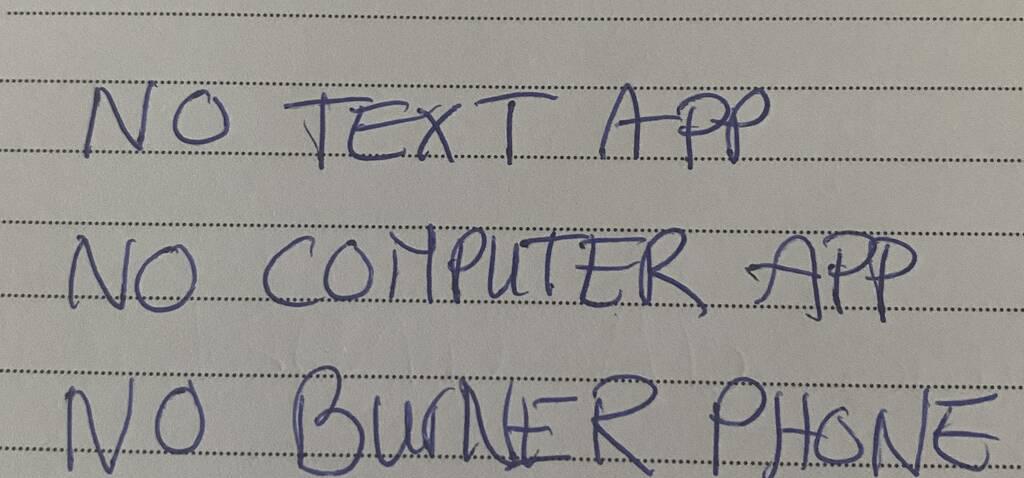 NO TEXT APP
NO COMPUTER APP
NO BURNER PHONE